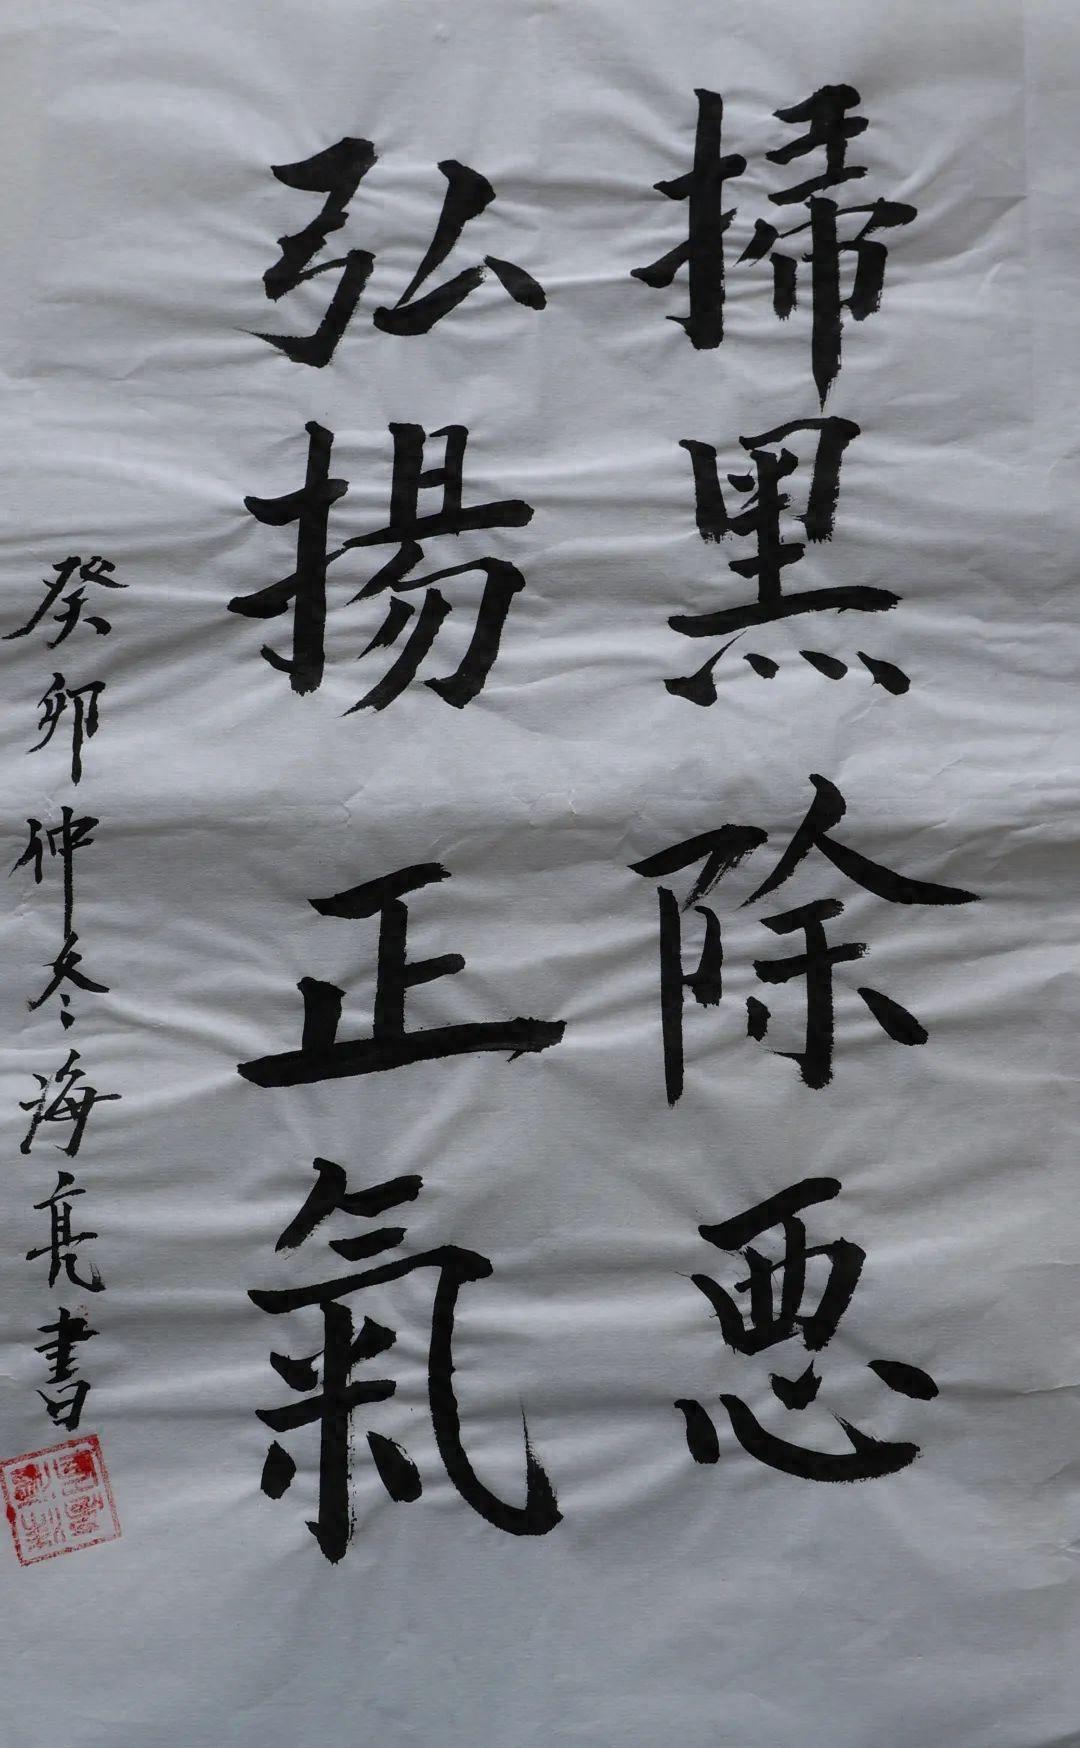 掃黑除惡
弘揚正氣
癸卯仲冬海亮書